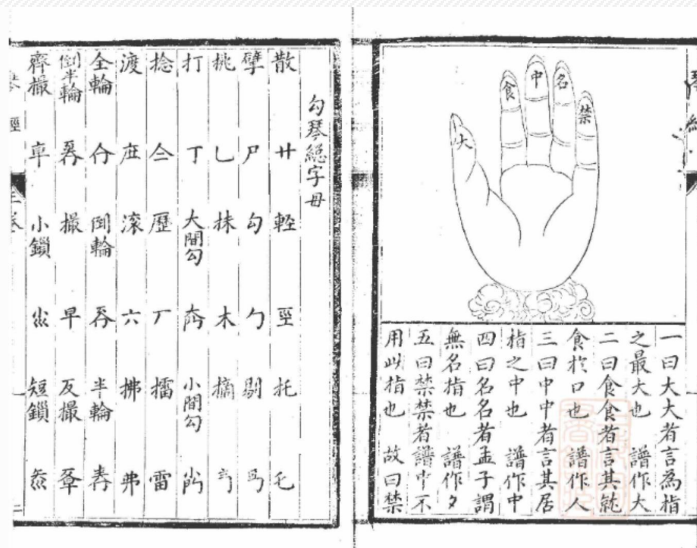 大
食
中
名
禁
一曰大大者言為指
之最大也 譜作大
二曰食食者言其能
食於口也 譜作人
三曰中中者言其居
指之中也 譜作中
四曰名名者孟子謂
無名指也 譜作夕
五曰禁禁者譜中不
用此指也 故曰禁
勾琴緫字母
散 艹 輕 巠 托 乇
擘 尸 勾 勹 剔
挑 乚 抹 木 摘
打 丁 大間勾 小間勾
捻 歷 厂 擂 雷
渡 滚 六 拂 弗
全輪 倒輪 半輪
倒半輪 撮 早 反撮
齊撮 小鎖 短鎖